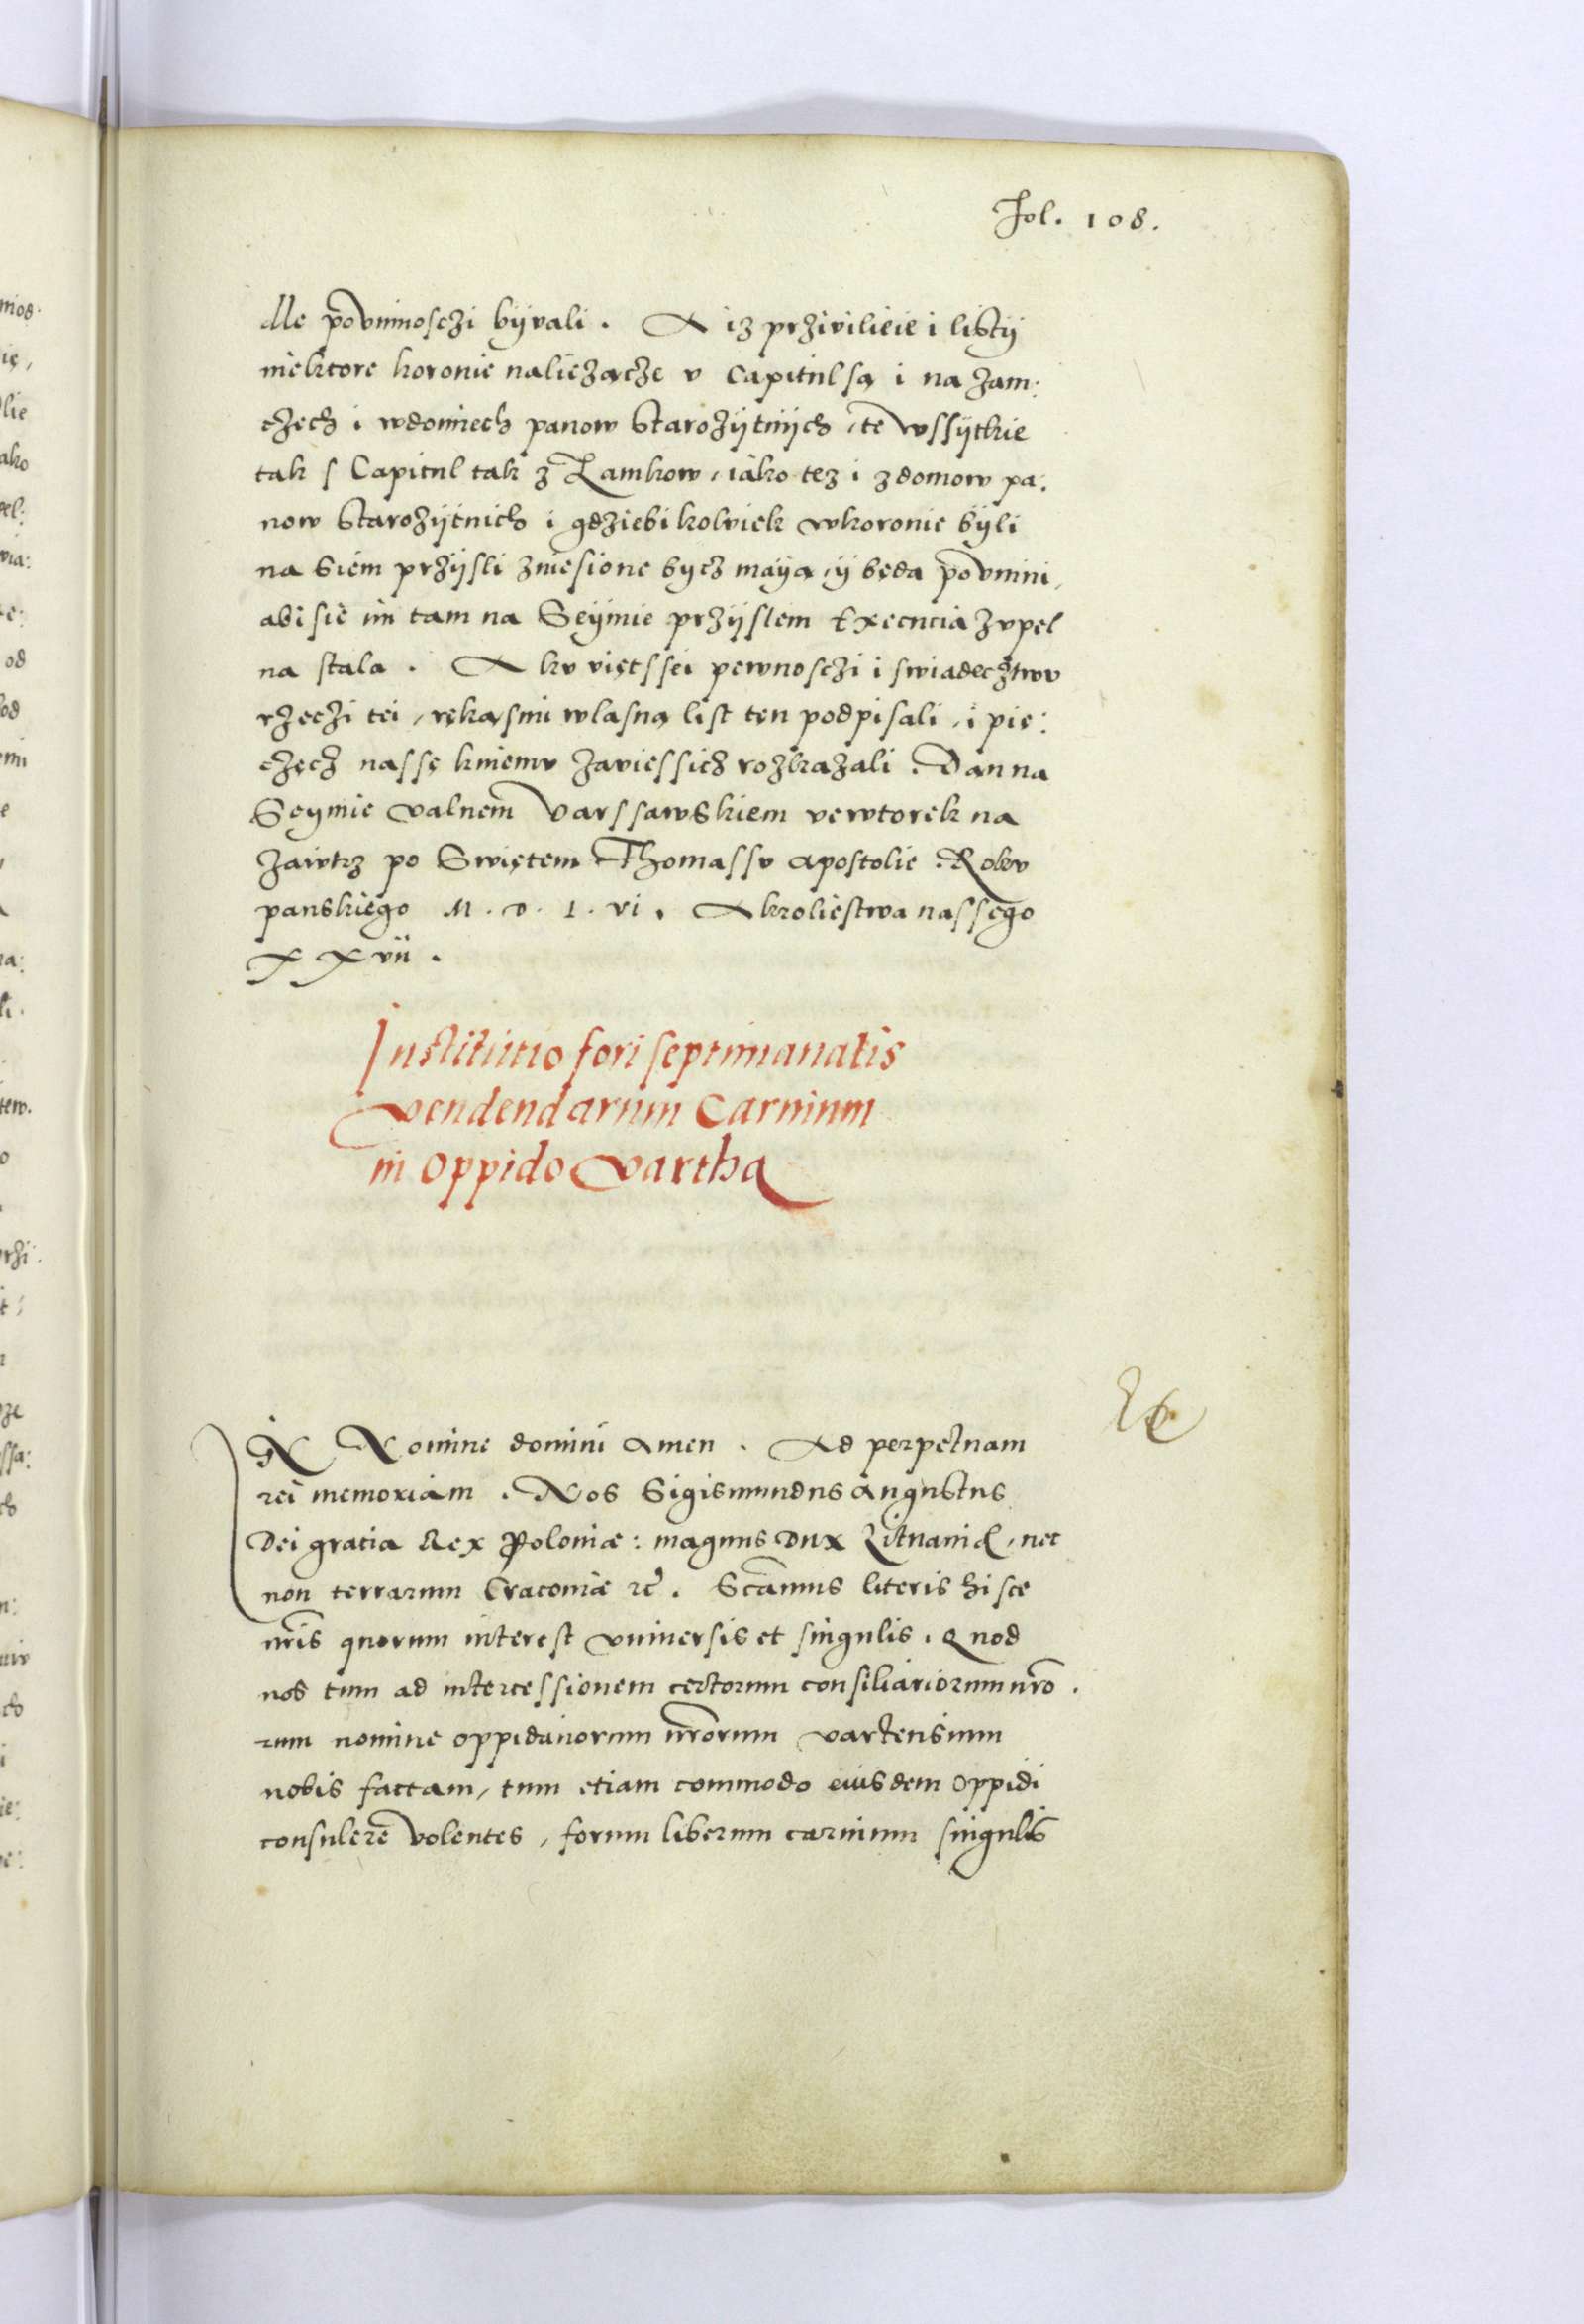 Fol. 108.
dlle povinnosczi byvali. A iz prziviliеie i listy
niektore koronie naliezacze v Capitul są i na zam:
czech i wdomiech panow Starozytnych, te wssytkie
tak s Capitul tak z Zamkow, iako tez i zdomow pa:
now Starozytnich i gdziebikolviek wkoronie byli
na Siem przysli zniesione bycz maya, y będa povinni,
abi sie im tam na Seymie przyslem Execucia zvpel
na stala. A kv viętssei pewnosczi i swiadecztwv
rzeczi tei, ręką smi wlasną list ten podpisali, i pie:
częcz nassę kniemv zaviessicz rozkazali. Dan na
Seymie valnem Varssawskiem vewtorek na
zaivtrz po Swiętem Thomassv apostolie. Rokv
panskiego M. D. L. vi. A kroliestwa nassego
XXvii.
Institutio fori septimanalis
vendendarum Carnium
in Oppido Vartha
IN Nomine domini amen. Ad perpetuam
rei memoriam. Nos Sigismundus Augustus
Dei gratia Rex Poloniæ: magnus Dux Lituaniæ, nec
non terrarum Cracoviæ etc. Scamus literis hisce
nris quorum interest vniversis et singulis. Quod
nos tum ad intercessionem certorum consiliariorum nro.
rum nomine oppidanorum nrorum vartensium
nobis factam, tum etiam commodo eiusdem Oppidi
consulere volentes, forum liberum carnium singulis